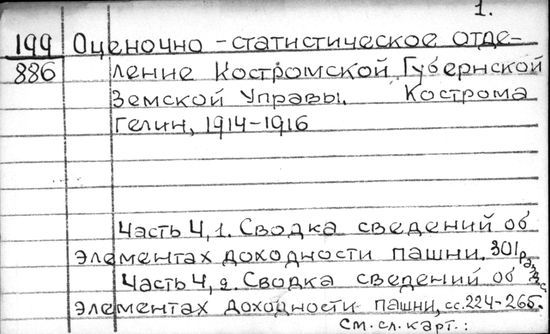 1.
199 Оценочно-статистическое отде-
886 ление Костромской Губернской
Земской Управы. Кострома
Гелин, 1914-1916
Часть 4,1. Сводка сведений об
элементах доходности пашни. 301
Часть 4,2. Сводка сведений об
элементах доходности пашни, сс. 224-265.
См. сл. карт.: